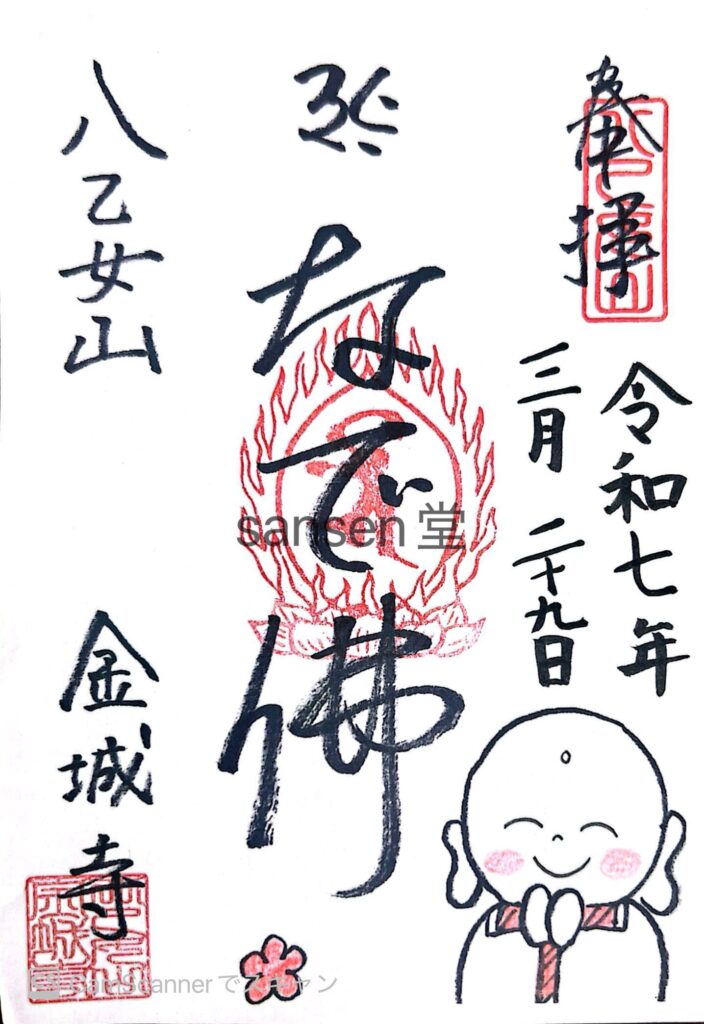 奉拝
令和七年
三月 二十九日
なで佛
八乙女山
金城寺
sansen堂
CamScannerでスキャン